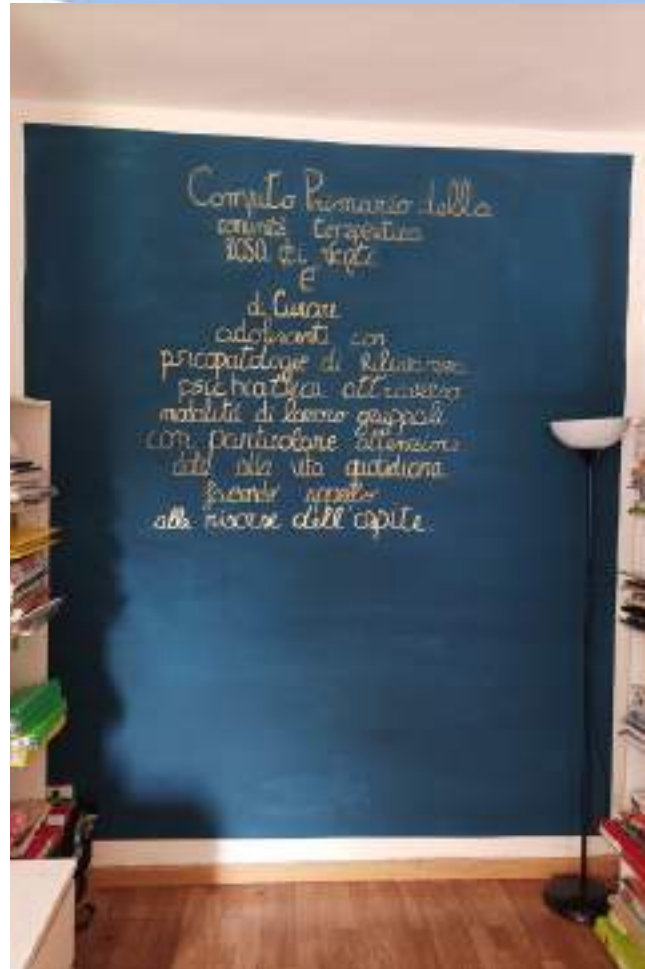 Compito Primario della
comunità terapeutica
ROSA dei Venti
è
di Curare
adolescenti con
psicopatologie di Rilevanza
psichiatrica attraverso
modalità di lavoro gruppali
con particolare attenzione
alla vita quotidiana
facendo appello
alle risorse dell'ospite